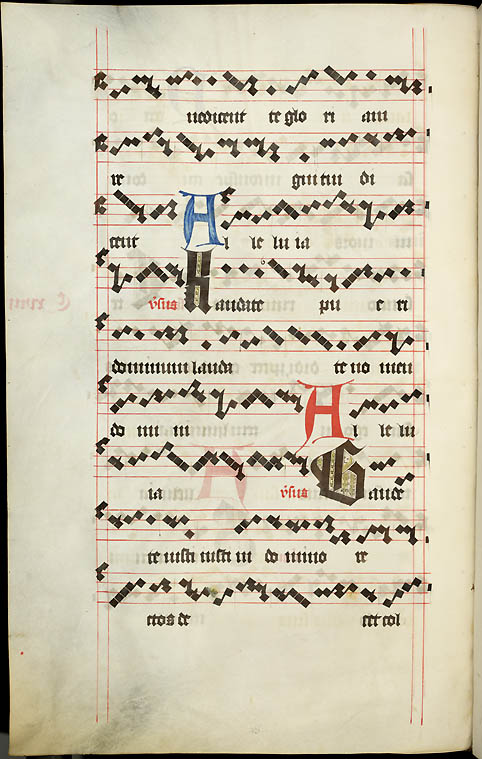 nedicent te glo ri am
re gni tui di
cent Al le lu ia
v̄sus Laudate pu e ri
dominum lauda te no men
do mi ni Al le lu
ia v̄sus Gaude
te iusti iusti in do mino re
ctos de cet col